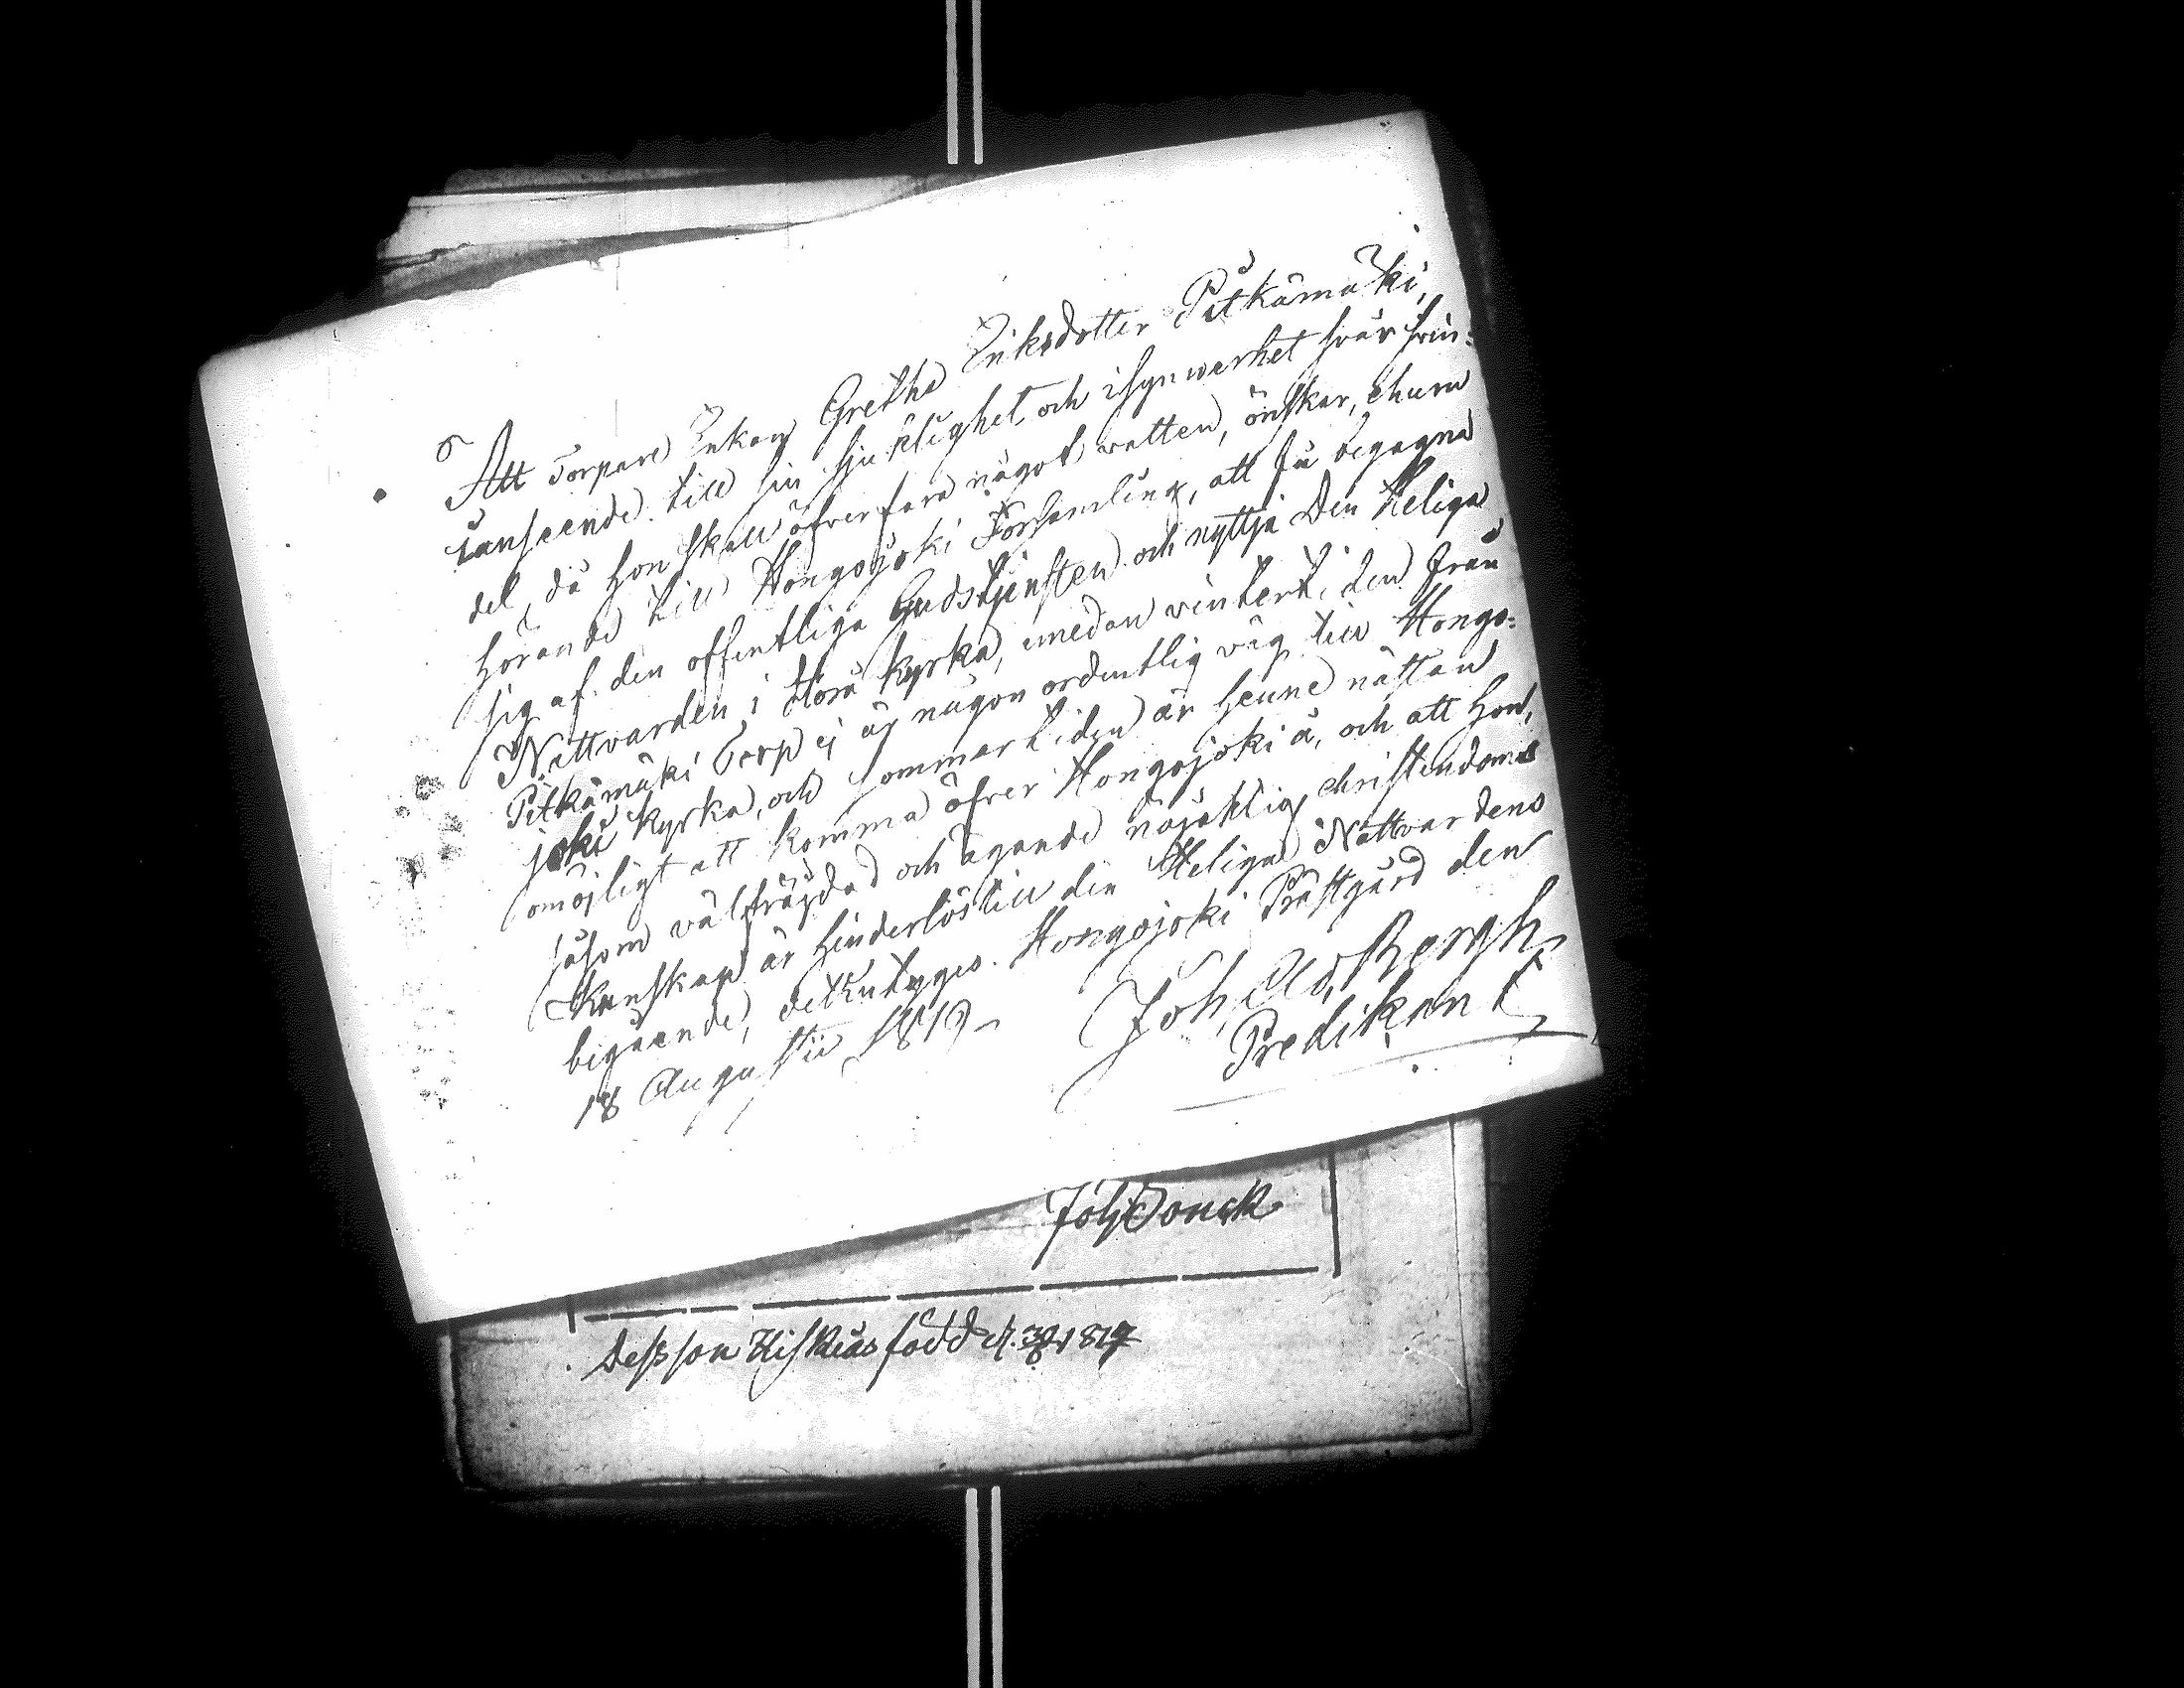 Att Torpare Enkan Gretha Eriksdotter Pitkämäki,
i anseende till sin sjuklighet och isynnerhet svår svin:
del, då hon skall öfverfara något vatten, önskar, ehuru
hörande till Hongojoki Församling, att få begagna
sig af den offentliga Gudstjensten och nyttja Den Heliga
Nattvarden i Storå Kyrka, emedan vintertiden från
Pitkämäki Torp ej är någon ordentlig väg till Hongo:
joki Kyrka, och sommartiden är henne nästan
omöjligt att komma öfver Hongojoki å, och att hon,
såsom välfrägdad och ägande nöjaktig christendoms
kunskap är hinderlös till den Heliga Nattvardens
begående, det intygas. Hongojoki Prästgård den
18 Augustii 1819
Joh. Ad. Bergh
Predikant
Joh
Dess son Hiskias född d. 1817